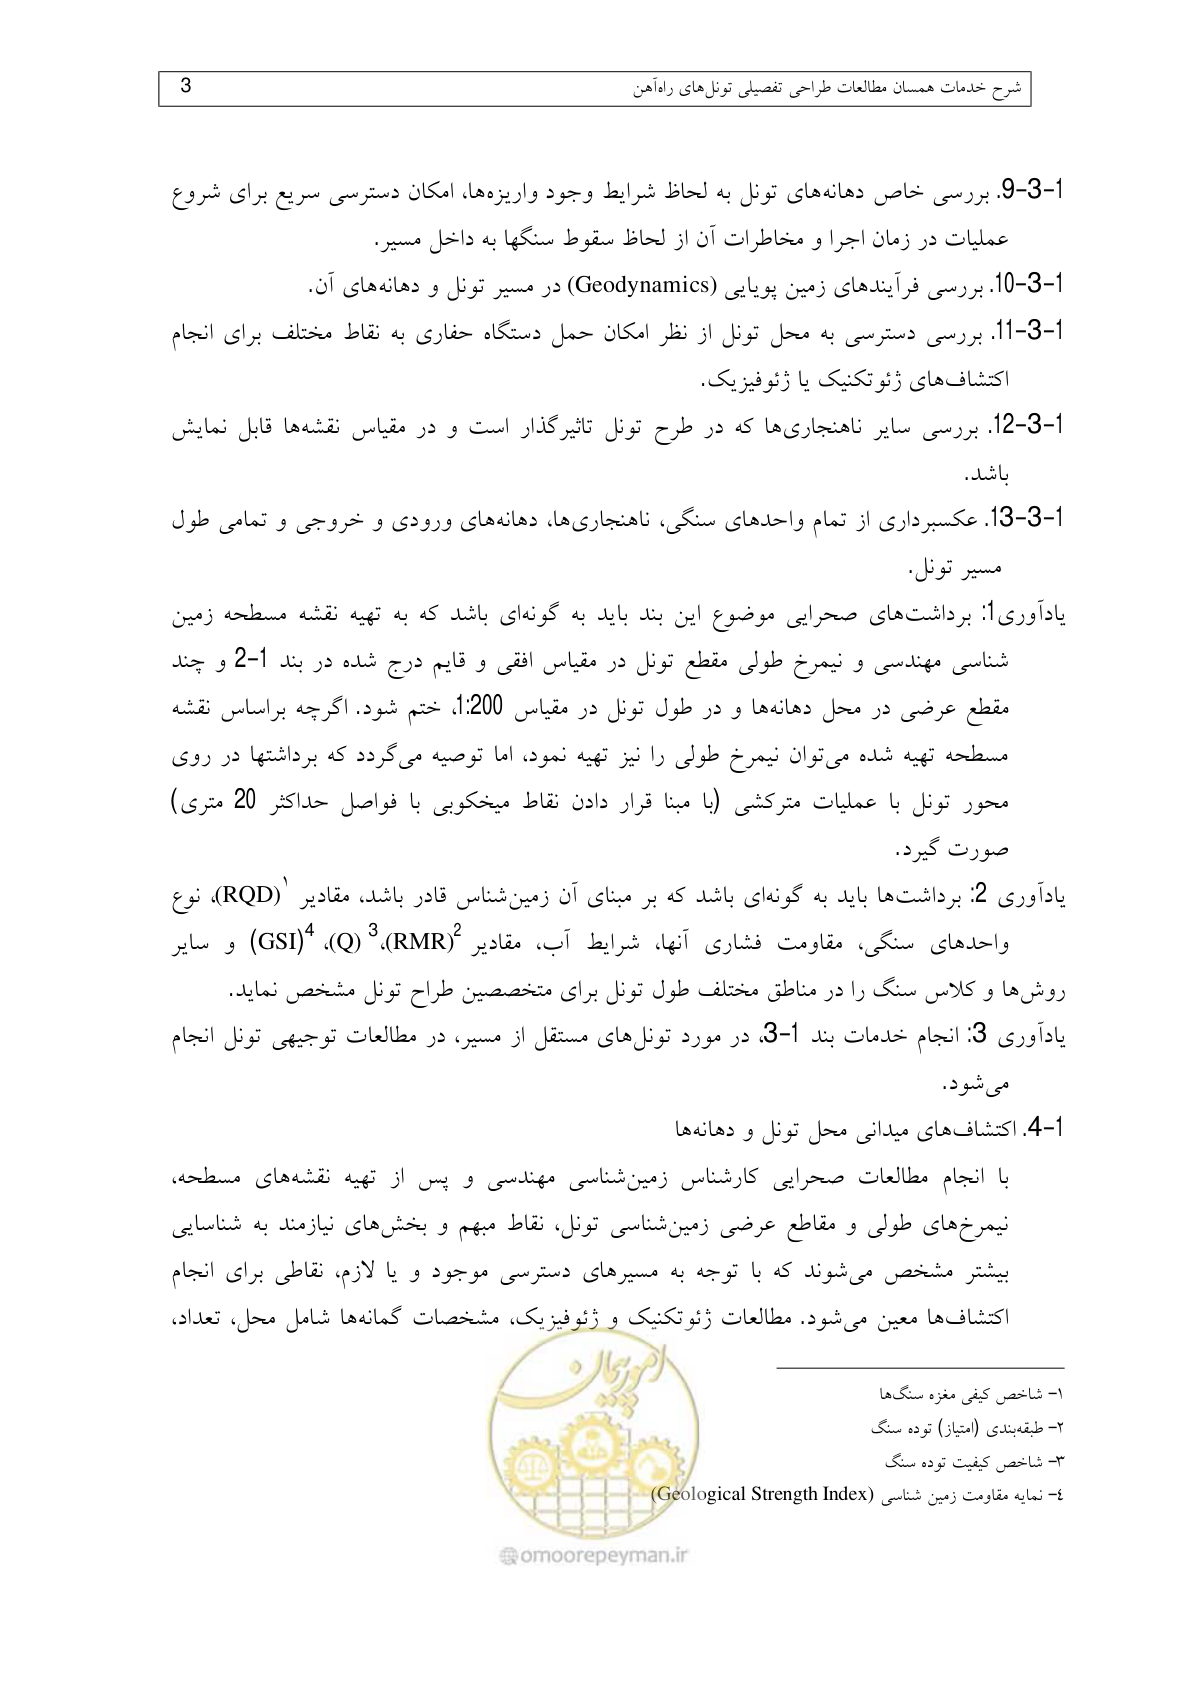 شرح خدمات همسان مطالعات طراحی تفصیلی تونل‌های راه‌آهن 3
1-3-9. بررسی خاص دهانه‌های تونل به لحاظ شرایط وجود واریزه‌ها، امکان دسترسی سریع برای شروع
عملیات در زمان اجرا و مخاطرات آن از لحاظ سقوط سنگها به داخل مسیر.
1-3-10. بررسی فرآیندهای زمین پویایی (Geodynamics) در مسیر تونل و دهانه‌های آن.
1-3-11. بررسی دسترسی به محل تونل از نظر امکان حمل دستگاه حفاری به نقاط مختلف برای انجام
اکتشاف‌های ژئوتکنیک یا ژئوفیزیک.
1-3-12. بررسی سایر ناهنجاری‌ها که در طرح تونل تاثیرگذار است و در مقیاس نقشه‌ها قابل نمایش
باشد.
1-3-13. عکسبرداری از تمام واحدهای سنگی، ناهنجاری‌ها، دهانه‌های ورودی و خروجی و تمامی طول
مسیر تونل.
یادآوری1: برداشت‌های صحرایی موضوع این بند باید به گونه‌ای باشد که به تهیه نقشه مسطحه زمین
شناسی مهندسی و نیمرخ طولی مقطع تونل در مقیاس افقی و قایم درج شده در بند 1-2 و چند
مقطع عرضی در محل دهانه‌ها و در طول تونل در مقیاس 1:200، ختم شود. اگرچه براساس نقشه
مسطحه تهیه شده می‌توان نیمرخ طولی را نیز تهیه نمود، اما توصیه می‌گردد که برداشتها در روی
محور تونل با عملیات مترکشی (با مبنا قرار دادن نقاط میخکوبی با فواصل حداکثر 20 متری)
صورت گیرد.
یادآوری 2: برداشت‌ها باید به گونه‌ای باشد که بر مبنای آن زمین‌شناس قادر باشد، مقادیر ۱(RQD)، نوع
واحدهای سنگی، مقاومت فشاری آنها، شرایط آب، مقادیر 2(RMR)، 3(Q)، 4(GSI) و سایر
روش‌ها و کلاس سنگ را در مناطق مختلف طول تونل برای متخصصین طراح تونل مشخص نماید.
یادآوری 3: انجام خدمات بند 1-3، در مورد تونل‌های مستقل از مسیر، در مطالعات توجیهی تونل انجام
می‌شود.
1-4. اکتشاف‌های میدانی محل تونل و دهانه‌ها
با انجام مطالعات صحرایی کارشناس زمین‌شناسی مهندسی و پس از تهیه نقشه‌های مسطحه،
نیمرخ‌های طولی و مقاطع عرضی زمین‌شناسی تونل، نقاط مبهم و بخش‌های نیازمند به شناسایی
بیشتر مشخص می‌شوند که با توجه به مسیرهای دسترسی موجود و یا لازم، نقاطی برای انجام
اکتشاف‌ها معین می‌شود. مطالعات ژئوتکنیک و ژئوفیزیک، مشخصات گمانه‌ها شامل محل، تعداد،
۱- شاخص کیفی مغزه سنگ‌ها
۲- طبقه‌بندی (امتیاز) توده سنگ
۳- شاخص کیفیت توده سنگ
٤- نمایه مقاومت زمین شناسی (Geological Strength Index)
امور پیمان
@omoorepeyman.ir